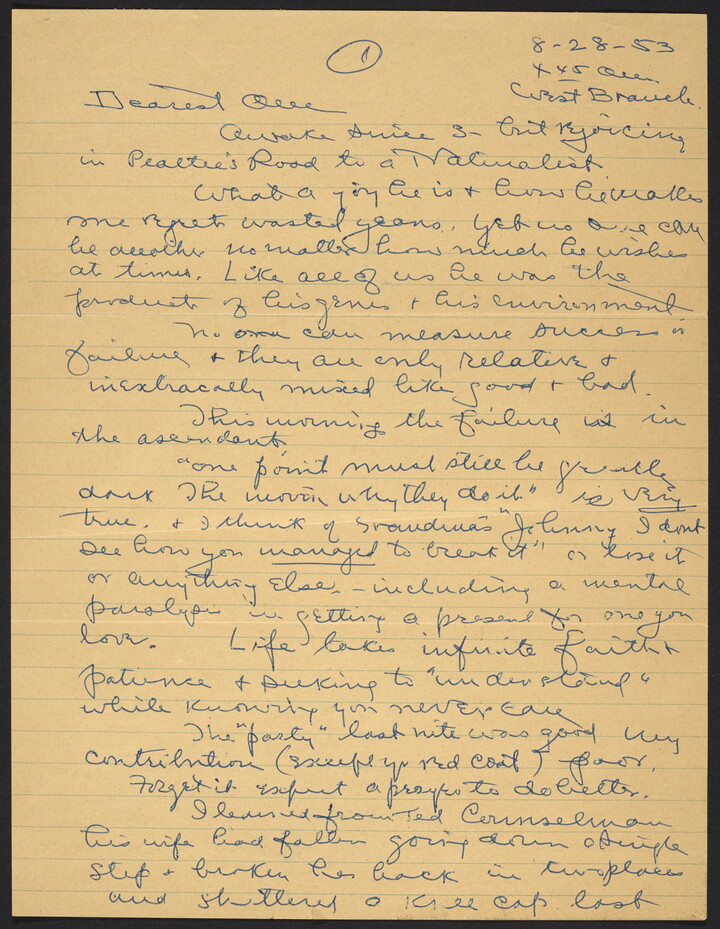 1
8-28-53
4 45 am.
West Branch.
Dearest One
Awake since 3 - but rejoicing
in Peattie's Road to a Naturalist
What a joy he is & how he makes
me regret wasted years. Yet no one can
be another no matter how much he wishes
at times. Like all of us he was the
product of his genes & his environment
No one can measure success or
failure & they are only relative &
inextracally mixed like good & bad.
This morning the failure is in
the ascendant
"one point must still be greatly
dark The movin why they do it" is very
true. & I think of Grandma's "Johnny I dont
see how you managed to break it" or lose it
or anything else - including a mental
paralysis in getting a present for one you
love. Life takes infinite faith &
patience & seeking to "understand"
while knowing you never can
The "party" last nite was good my
contribution (except yr red coat) poor.
Forget it except a prayer to do better.
I learned from Ted Counselman
his wife had fallen going down a single
step & broken her back in two places
and shattered a knee cap last